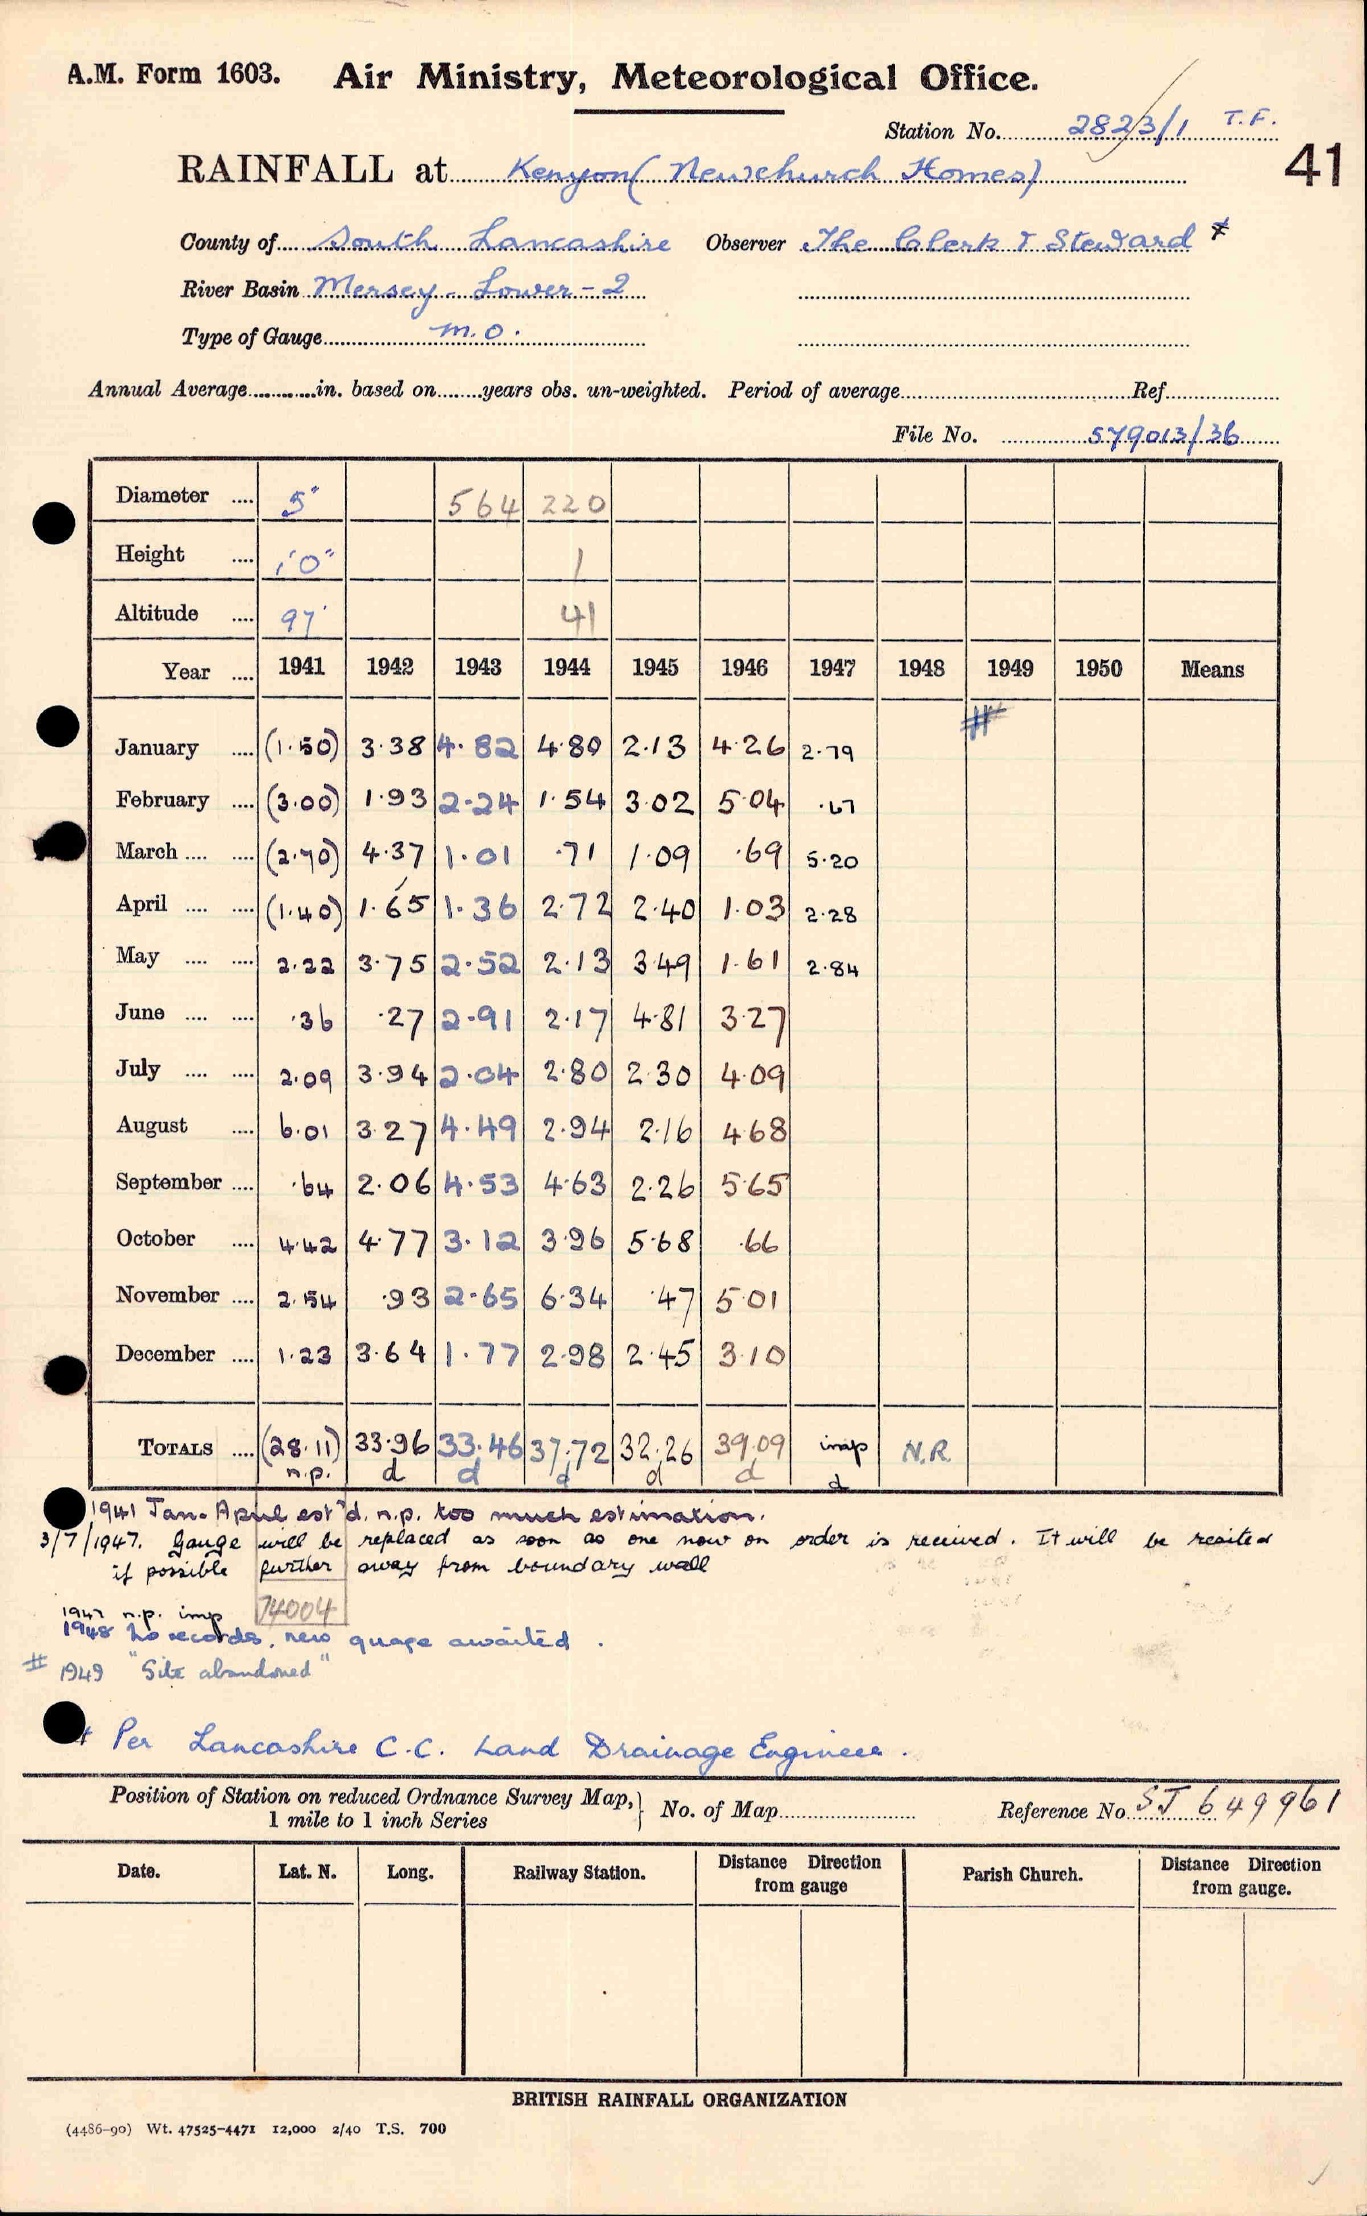 A.M. Form 1603. Air Ministry, Meteorological Office.
Station No. 2823/1 T.F.
41
RAINFALL at Kenyon (Newchurch Homes)
County of South Lancashire Observer The Clerk & Steward ‡
River Basin Mersey - Lower - 2
Type of Gauge M.O.
Annual Average in. based on years obs. un-weighted. Period of average Ref.
File No. 579013/36
Diameter .... 5" 564 220
Height .... 1'0" 1
Altitude .... 97' 41
Year .... 1941 1942 1943 1944 1945 1946 1947 1948 1949 1950 Means
#
January .... (1.50) 3.38 4.82 4.80 2.13 4.26 2.79
February .... (3.00) 1.93 2.24 1.54 3.02 5.04 .67
March .... .... (2.70) 4.37 1.01 .71 1.09 .69 5.20
April .... .... (1.40) 1.65 1.36 2.72 2.40 1.03 2.28
May .... .... 2.22 3.75 2.52 2.13 3.49 1.61 2.84
June .... .... .36 .27 2.91 2.17 4.81 3.27
July .... .... 2.09 3.94 2.04 2.80 2.30 4.09
August .... 6.01 3.27 4.49 2.94 2.16 4.68
September .... .64 2.06 4.53 4.63 2.26 5.65
October .... 4.42 4.77 3.12 3.96 5.68 .66
November .... 2.54 .93 2.65 6.34 .47 5.01
December .... 1.23 3.64 1.77 2.98 2.45 3.10
TOTALS .... (28.11) 33.96 33.46 37.72 32.26 39.09 imp N.R.
n.p. d d d d d d
1941 Jan-April est'd. n.p. too much estimation.
3/7/1947. Gauge will be replaced as soon as one now on order is received. It will be resited
if possible further away from boundary wall
1947 n.p. imp 74004
1948 no records, new guage awaited.
# 1949 "Site abandoned"
‡ Per Lancashire C.C. Land Drainage Engineer.
Position of Station on reduced Ordnance Survey Map, 1 mile to 1 inch Series } No. of Map Reference No. SJ 649961
Date. Lat. N. Long. Railway Station. Distance Direction from gauge Parish Church. Distance Direction from gauge.
BRITISH RAINFALL ORGANIZATION
(4486-90) Wt. 47525-4471 12,000 2/40 T.S. 700